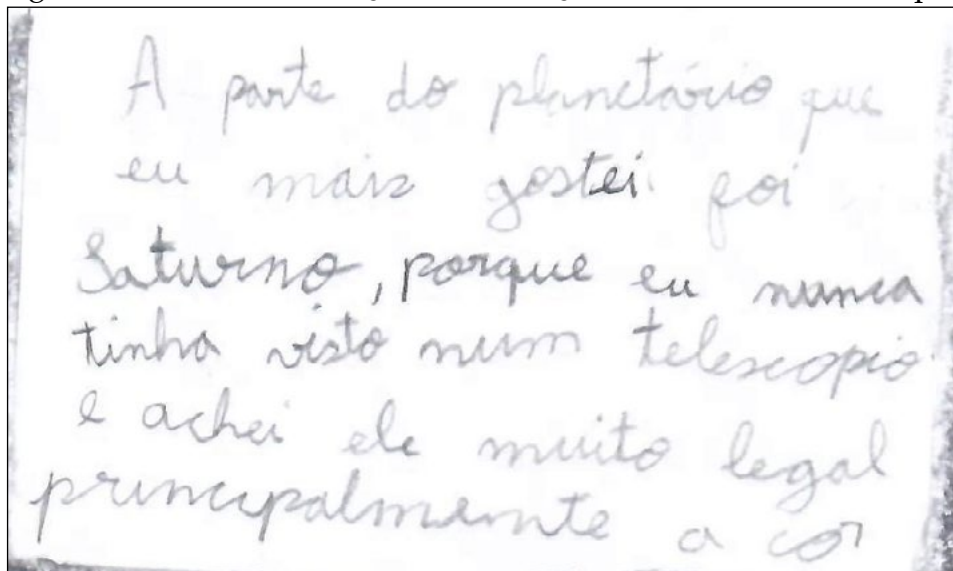 A parte do planetário que
eu mais gostei foi
Saturno, porque eu nunca
tinha visto num telescopio
e achei ele muito legal
principalmente a cor